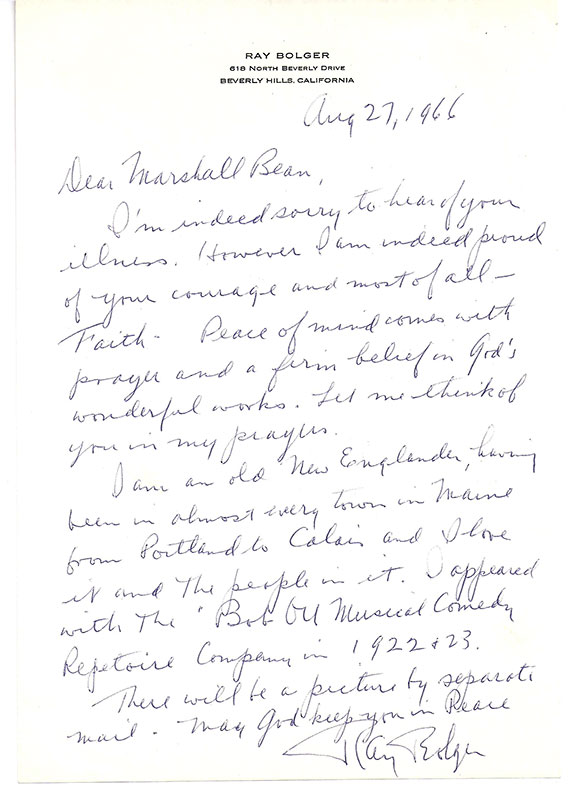 RAY BOLGER
618 NORTH BEVERLY DRIVE
BEVERLY HILLS, CALIFORNIA
Aug 27, 1966
Dear Marshall Bean,
I'm indeed sorry to hear of your
illness. However I am indeed proud
of your courage and most of all —
Faith - Peace of mind comes with
prayer and a firm belief in God's
wonderful works. Let me think of
you in my prayers.
I am an old New Englander, having
been in almost every town in Maine
from Portland to Calais and I love
it and the people in it. I appeared
with the "Bob Ott Musical Comedy
Repetoire Company in 1922 & 23.
There will be a picture by separate
mail - May God keep you in Peace
Ray Bolger